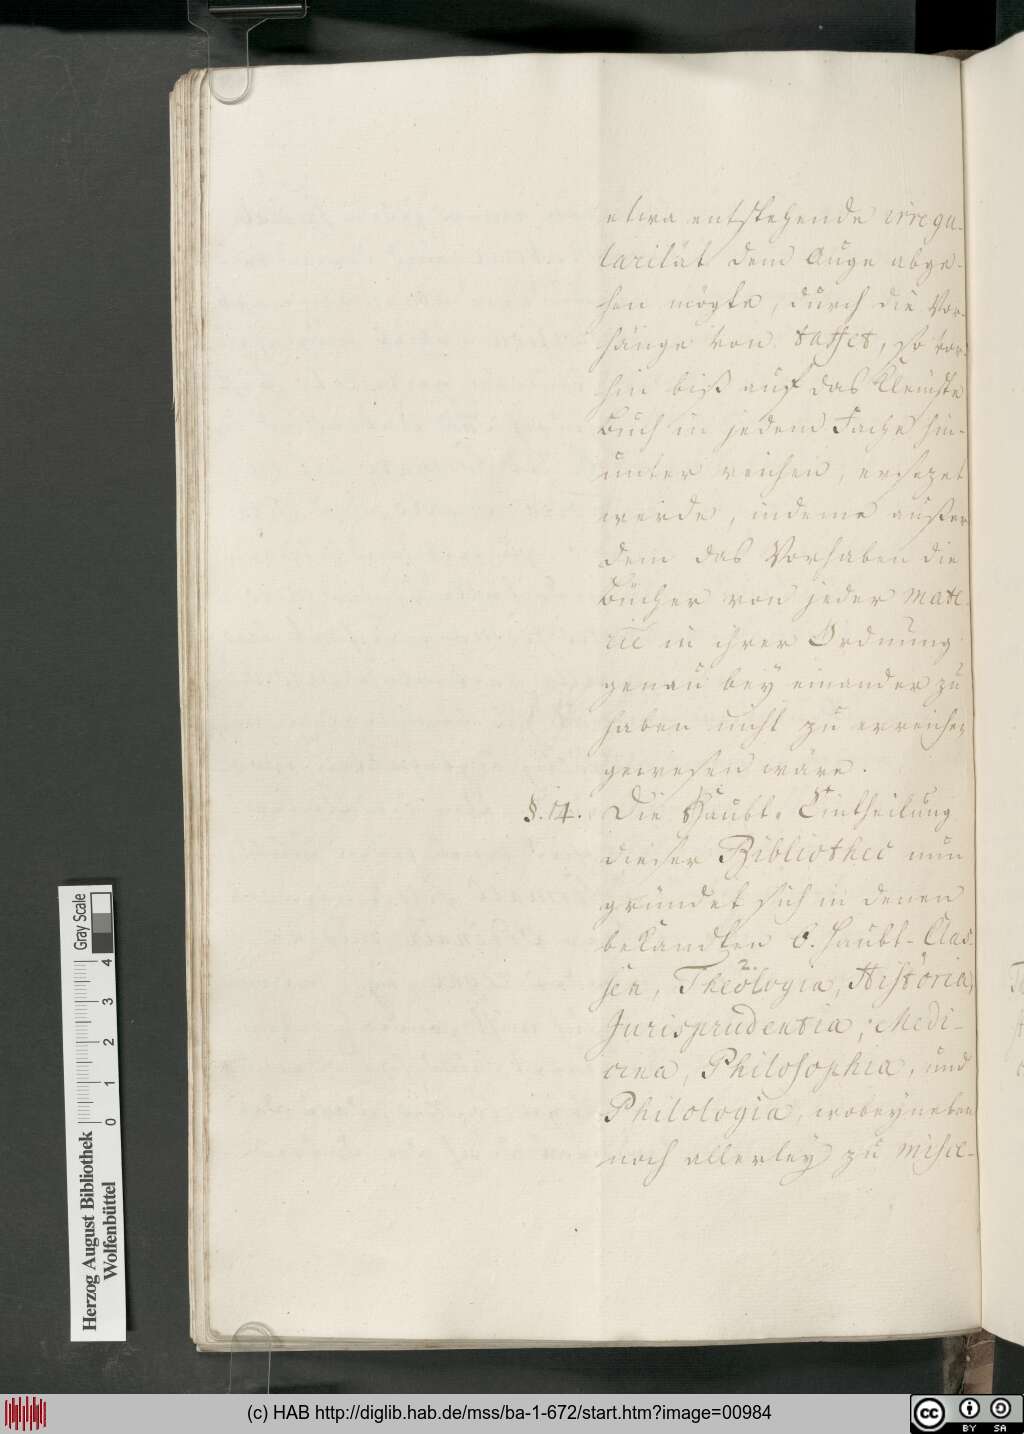 etwa entstehende irregu-
laritat dem Auge abge-
hen mögte, durch die Vor-
hänge von taffet, so vor-
hin biß auf das kleinste
Buch in jedem Fache hin-
unter reichen, ersezet
werde, indeme außer
dem das Vorhaben die
Bücher von jeder mate-
rie in ihrer Ordnung
genau bey einander zu
haben nicht zu erreichen
gewesen wäre.
§. 14. Die Haubt-Eintheilung
dieser Bibliothec nun
gründet sich in denen
bekandten 6. Haubt-Clas-
sen, Theologia, Historia,
Jurisprudentia, Medi-
cina, Philosophia, und
Philologia, wobeyneben
noch allerley zu misce-
Gray Scale
0 1 2 3 4
Herzog August Bibliothek
Wolfenbüttel
(c) HAB http://diglib.hab.de/mss/ba-1-672/start.htm?image=00984
cc BY SA